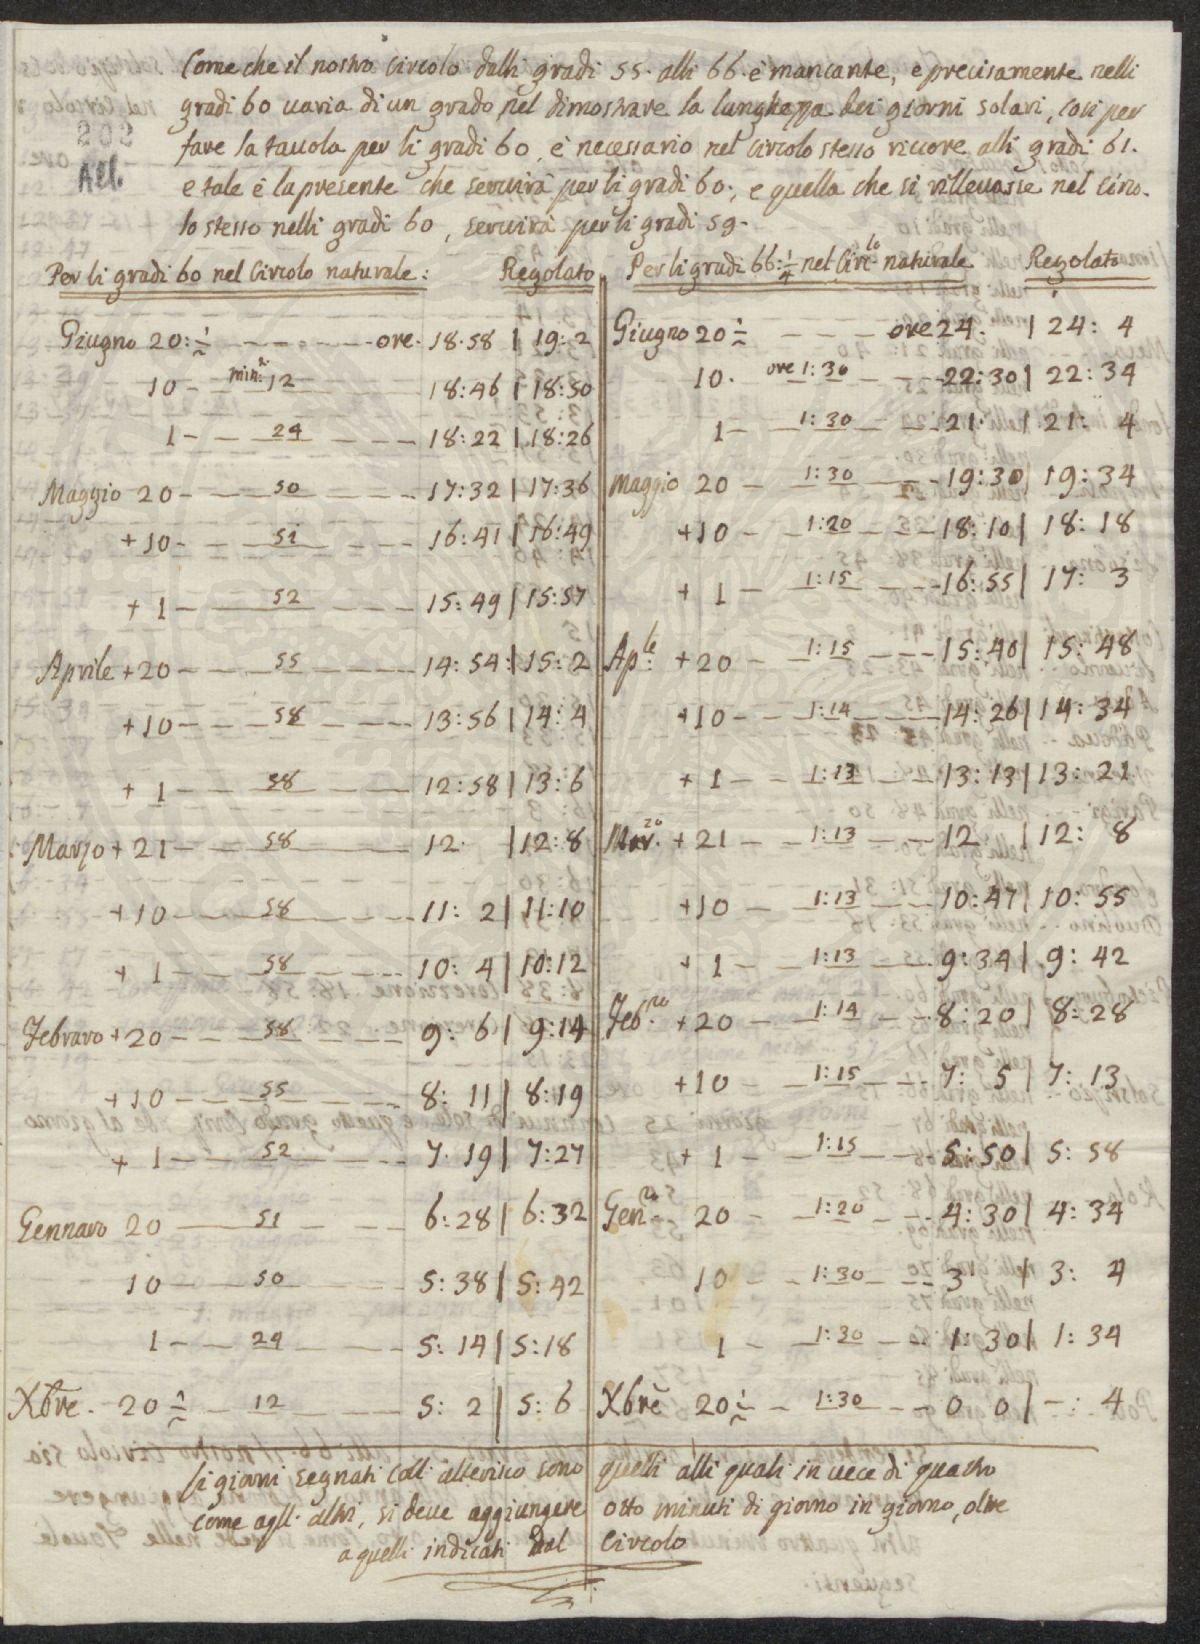 Come che il nostro circolo dalli gradi 55. alli 66. è mancante, e precisamente nelli
gradi 60 uaria di un grado nel dimostrare la lunghezza dei giorni solari, così per
fare la tauola per li gradi 60, è necessario nel circolo stesso ricore alli gradi 61.
e tale è la presente che seruirà per li gradi 60:, e quella che si rilleuasse nel circo-
lo stesso nelli gradi 60, seruirà per li gradi 59.
203
All.
Per li gradi 60 nel Circolo naturale: Regolato
Giugno 20:½ - - - - - - ore. 18.58 | 19:2
10 - min:e 12 18:46 | 18:50
1 - - 24 - - - - 18:22 | 18:26
Maggio 20 - - 50 - - - - 17:32 | 17:36
+10 - - 51 - - - 16:41 | 16:49
+ 1 - 52 - - - 15:49 | 15:57
Aprile +20 - - 55 - - - 14:54: | 15:2
+10 - - 58 - - - 13:56 | 14:4
+ 1 - 58 - - - 12:58 | 13:6
Marzo + 21 - - 58 - - - 12. | 12:8
+10 - - 58 - - - 11: 2 | 11:10
+ 1 - - 58 - - - 10: 4 | 10:12
Febraro + 20 - - 58 - - - 9: 6 | 9:14
+10 - - 55 - - - 8: 11 | 8:19
+ 1 - - 52 - - - 7: 19 | 7:27
Gennaro 20 - 51 - - - 6:28 | 6:32
10 - - 50 - - - 5:38 | 5:42
1 - - 24 - - - 5: 14 | 5:18
Xbre. 20 ½ - 12 - - - 5: 2 | 5: 6
Per li gradi 66:¼ nel Circ:lo naturale Regolato
Giugno 20 ½ - - - - ore 24. | 24: 4
10. ore 1:30 - - - 22:30 | 22:34
1 - - 1:30 - - - 21. | 21: 4
Maggio 20 - 1:30 - - - 19:30 | 19:34
+10 - 1:20 - - - 18:10 | 18:18
+ 1 - 1:15 - - - 16:55 | 17: 3
Ap:le +20 - 1:15 - - - 15:40 | 15:48
+10 - - 1:14 - - - 14:26 | 14:34
+ 1 - - 1:13 - - - 13:13 | 13:21
Mar.zo + 21 - - 1:13 - - - 12 | 12: 8
+10 - 1:13 - - - 10:47 | 10:55
+ 1 - - 1:13 - - - 9:34 | 9:42
Feb:ro + 20 - 1:14 - - - 8:20 | 8:28
+10 - - 1:15 - - - 7: 5 | 7: 13
+ 1 - 1:15 - - - 5:50 | 5:58
Gen:ro 20 - 1:20 - - - 4:30 | 4:34
10 - - 1:30 - - - 3 | 3: 4
1 - 1:30 - - - 1:30 | 1:34
Xbre 20 ½ - 1:30 - - 0 0 | - : 4
Li giorni segnati coll' asterisco sono quelli alli quali in uece di quattro
come agli altri, si deue aggiungere otto minuti di giorno in giorno, oltre
a quelli indicati dal Circolo